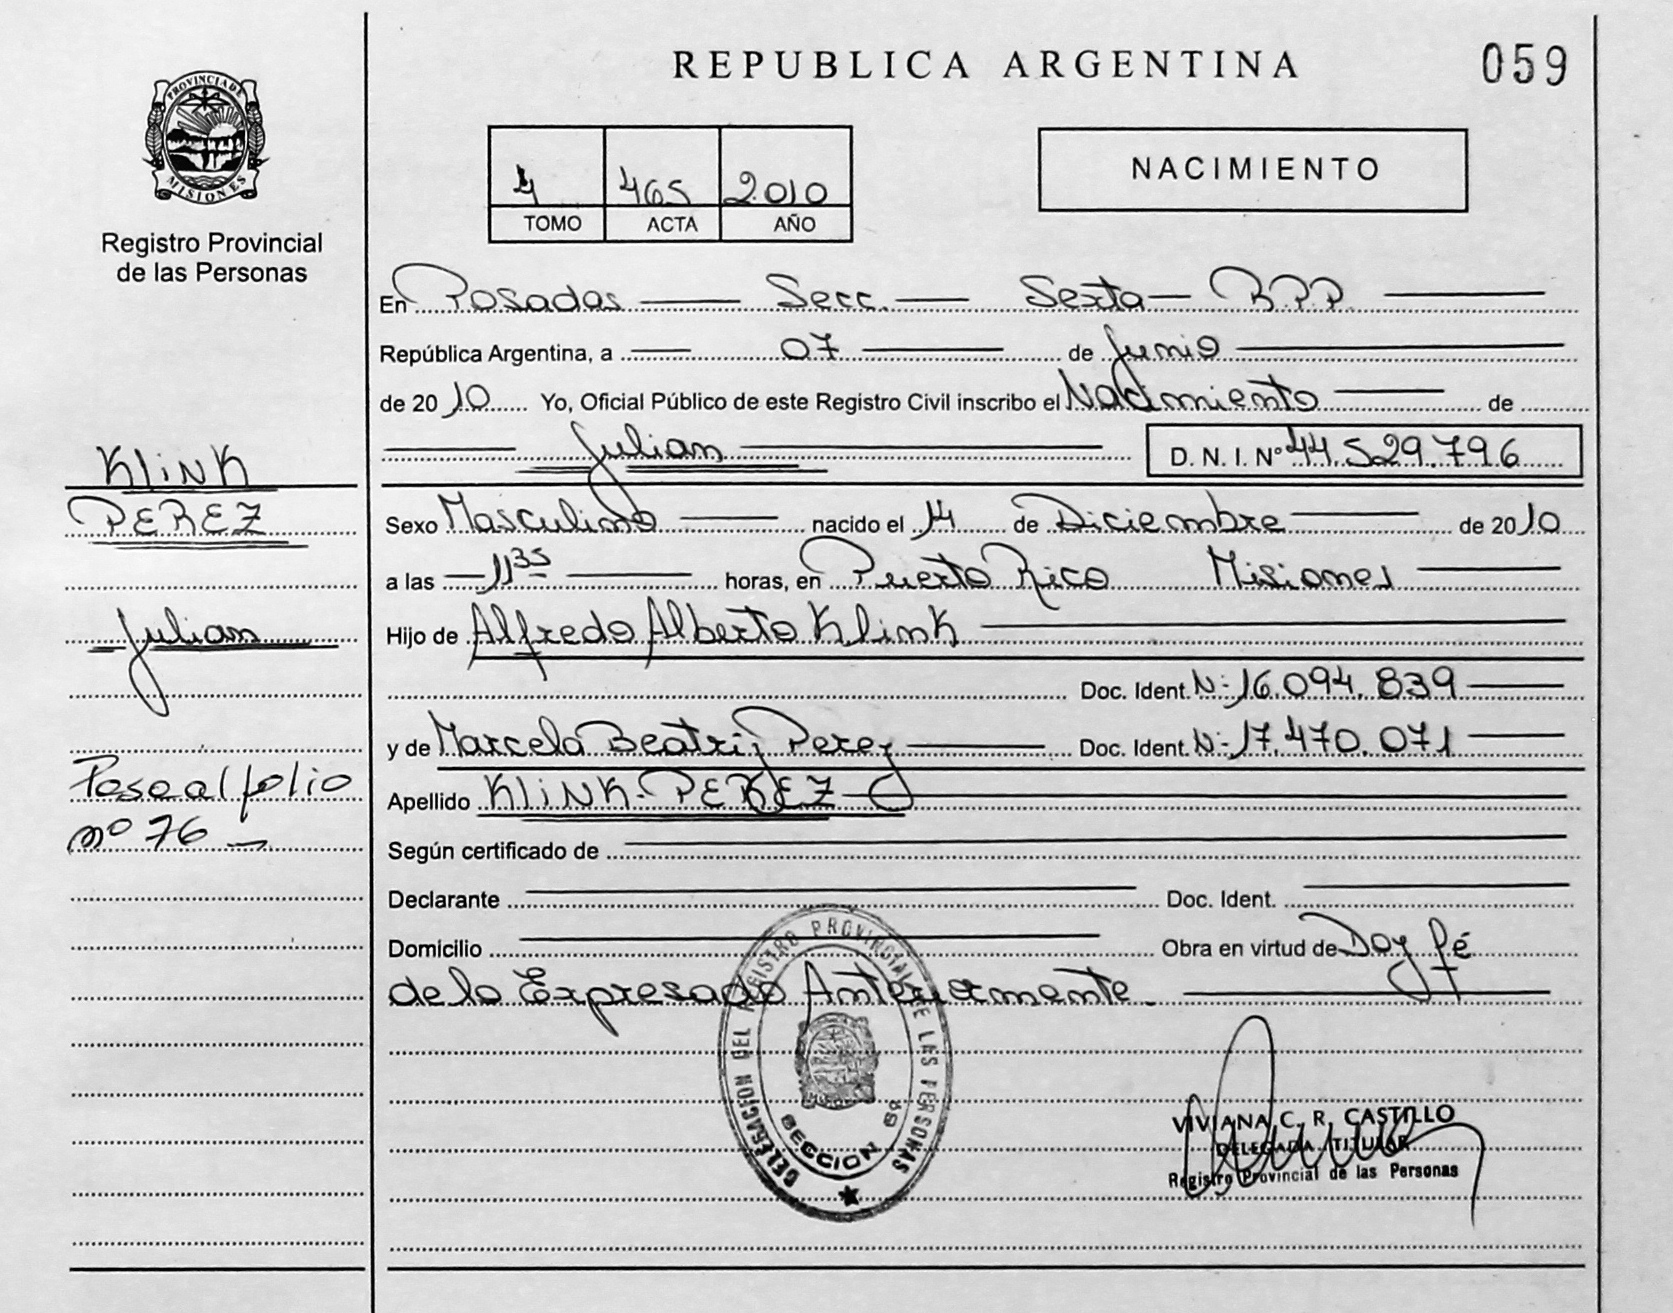 REPUBLICA ARGENTINA
059
PROVINCIA DE
MISIONES
Registro Provincial
de las Personas
4 465 2010
TOMO ACTA AÑO
NACIMIENTO
En Posadas Secc. Sexta R.P.P.
República Argentina, a 07 de Junio
de 2010 Yo, Oficial Público de este Registro Civil inscribo el Nacimiento de
Julian D. N. I. Nº 44.529.796
Sexo Masculino nacido el 14 de Diciembre de 2010
a las 11 35 horas, en Puerto Rico Misiones
Hijo de Alfredo Alberto Klink
Doc. Ident. Nº 16.094.839
y de Marcela Beatriz Perez Doc. Ident. Nº 17.470.071
Apellido KLINK-PEREZ
Según certificado de
Declarante Doc. Ident.
Domicilio Obra en virtud de Doy fé
de lo Expresado Anteriormente.
KLINK
PEREZ
Julian
Pase al folio
nº 76
DELEGACION DEL REGISTRO PROVINCIAL DE LAS PERSONAS
SECCION 6ª
VIVIANA C. R. CASTILLO
DELEGADA TITULAR
Registro Provincial de las Personas